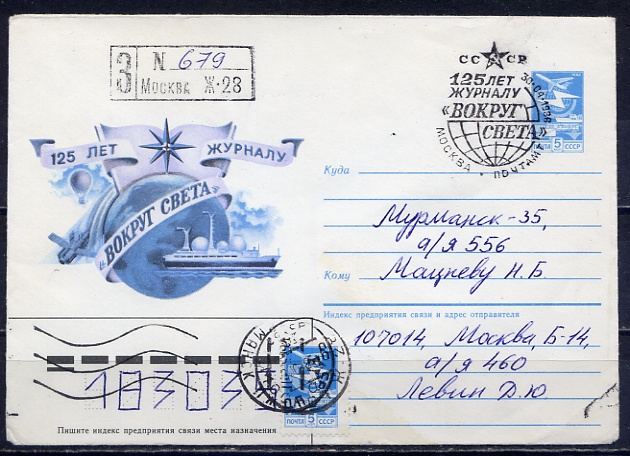 З N 679
Москва Ж-28
СССР
125 ЛЕТ
ЖУРНАЛУ
«ВОКРУГ
СВЕТА»
30.04.1986
МОСКВА • ПОЧТАМТ
ПОЧТА 5 СССР
125 ЛЕТ ЖУРНАЛУ
«ВОКРУГ СВЕТА»
Куда
Мурманск-35,
а/я 556
Кому Мацневу Н.Б.
Индекс предприятия связи и адрес отправителя
107014, Москва, Б-14,
а/я 460
Левин Д.Ю
ПОЧТА 5 СССР
183035
Пишите индекс предприятия связи места назначения